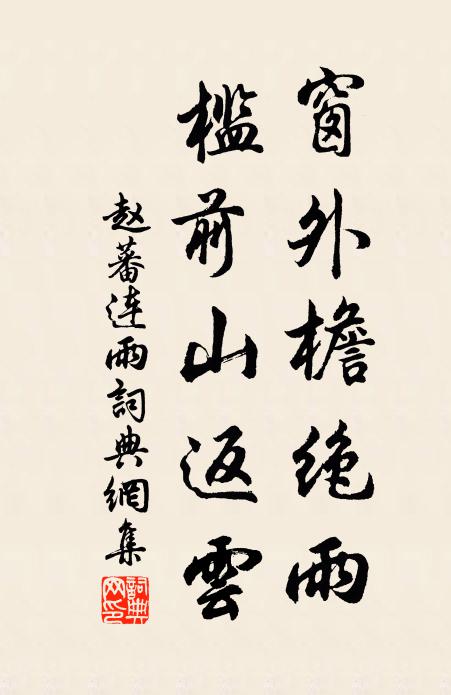 窗外檐绝雨
槛前山返雲
赵蕃连雨詞典網集
詞典网印